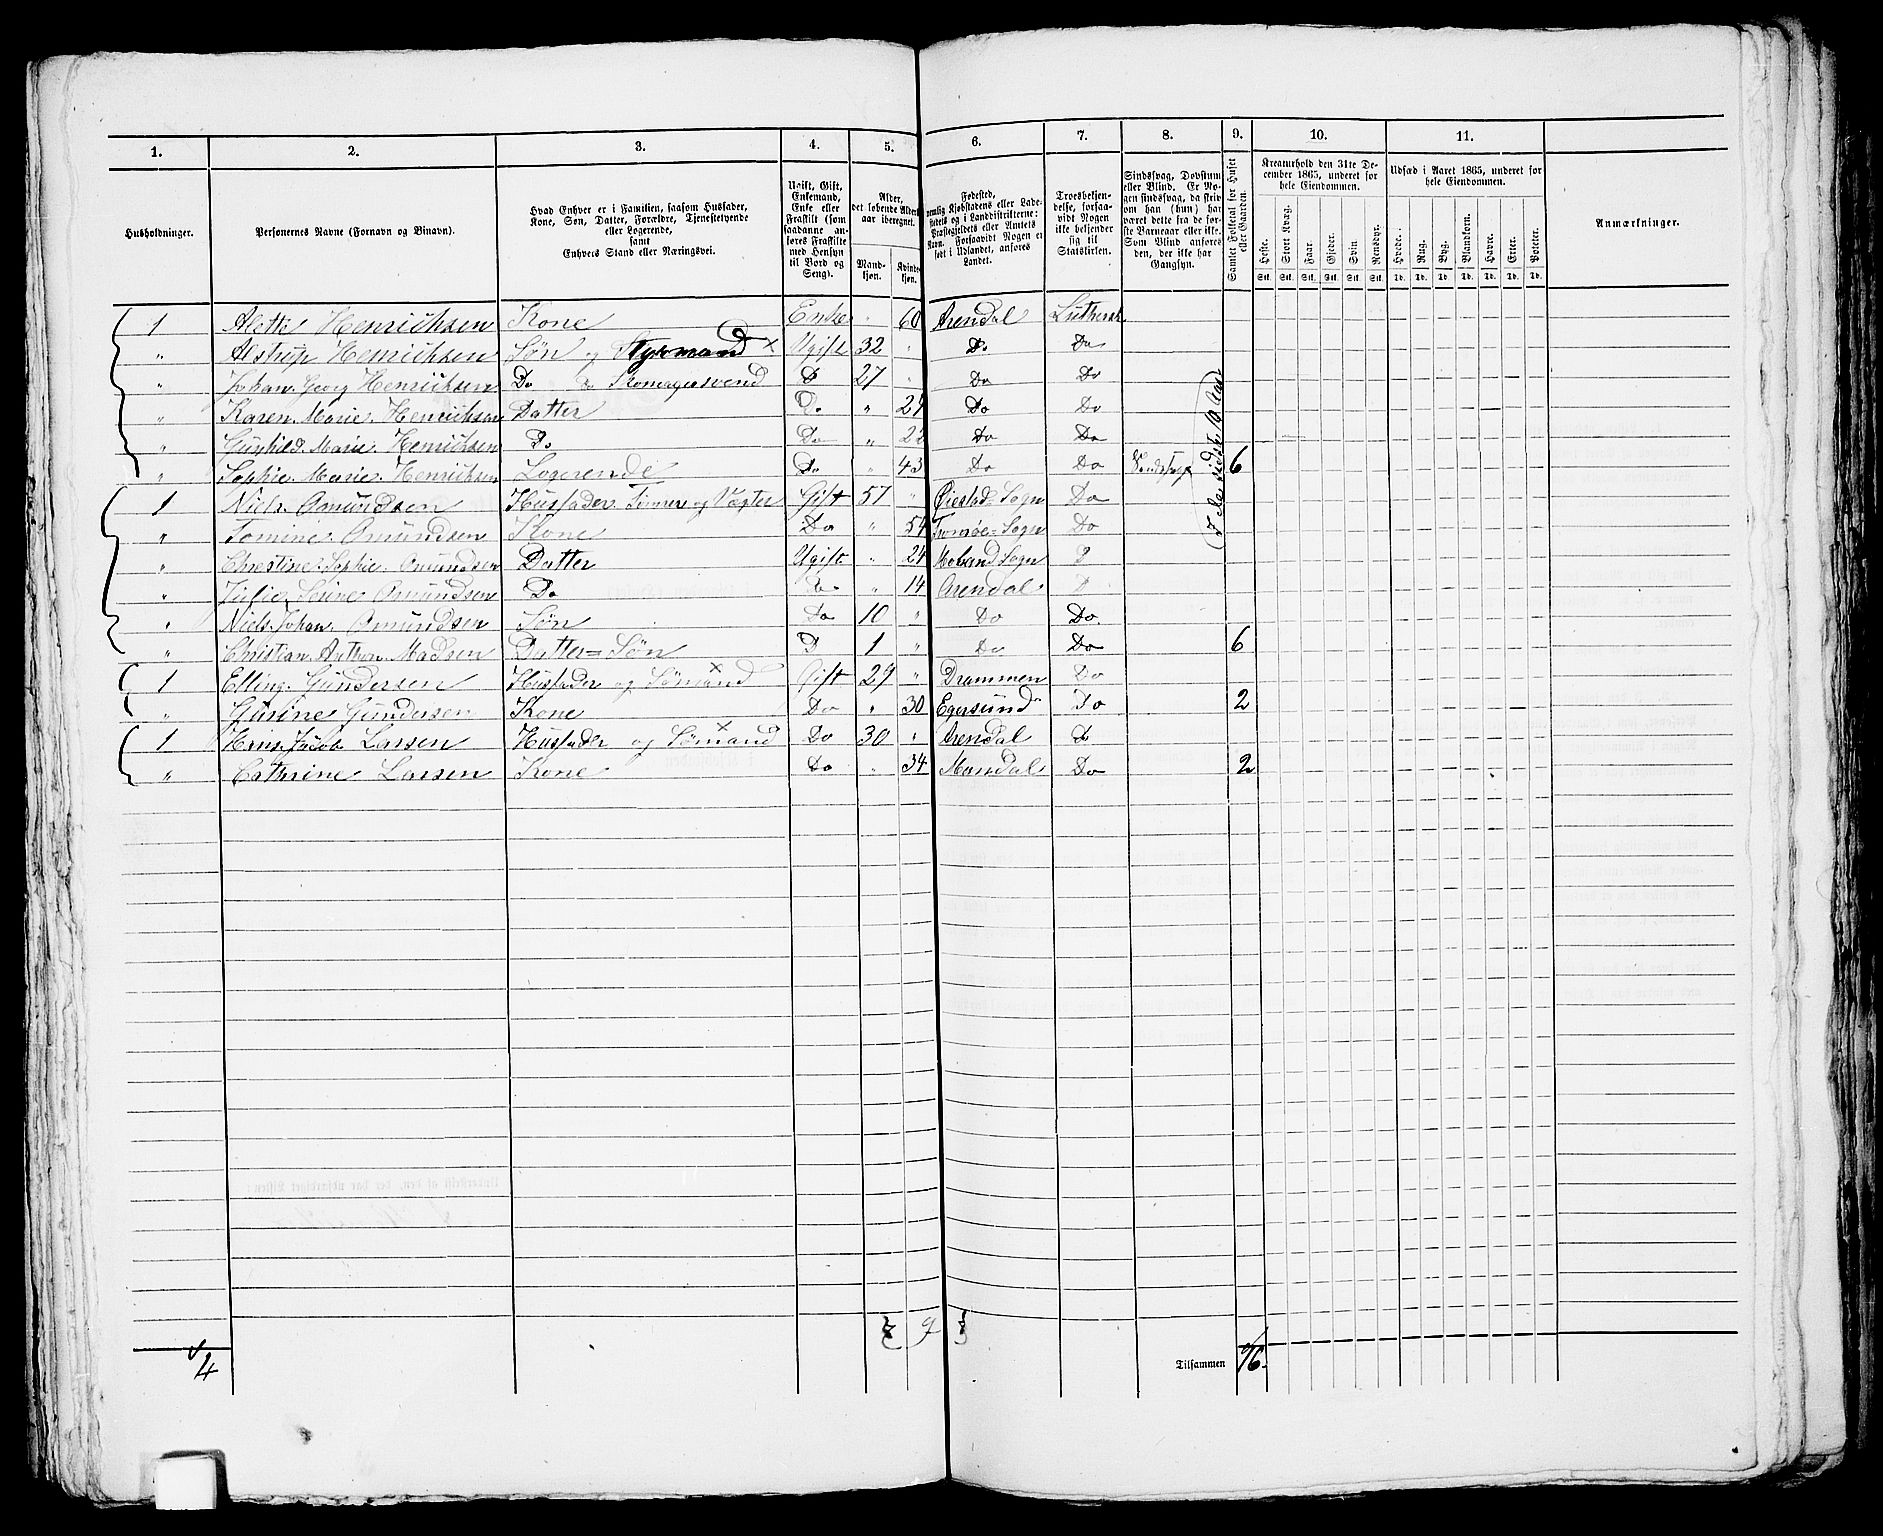 1. 2. 3. 4. 5. 6. 7. 8. 9. 10. 11.
Husholdninger.
Personernes Navne (Fornavn og Binavn).
Hvad Enhver er i Familien, saasom Husfader,
Kone, Søn, Datter, Forældre, Tjenestetyende
eller Logerende,
samt
Enhvers Stand eller Næringsvei.
Ugift, Gift,
Enkemand,
Enke eller
Fraskilt (som
saadanne an-
føres Fraskilte
med Hensyn
til Bord og
Seng).
Alder,
det løbende Alders-
aar iberegnet.
Mand-
kjøn.
Kvinde-
kjøn.
Fødested,
nemlig Kjøbstadens eller Lade-
stedets og i Landdistrikterne:
Præstegjeldets eller Amtets
Navn. Forsaavidt Nogen er
født i Udlandet, anføres
Landet.
Troesbekjen-
delse, forsaa-
vidt Nogen
ikke bekjender
sig til
Statskirken.
Sindssvag, Døvstum
eller Blind. Er No-
gen sindssvag, da skrives
om han (hun) har
været dette fra de før-
ste Barneaar eller ikke.
Som Blind anføres
den, der ikke har
Gangsyn.
Samlet Folketal for Huset
eller Gaarden.
Kreaturhold den 31te De-
cember 1865, underet for
hele Eiendommen.
Heste. Stort Kvæg. Faar. Gjeder. Svin. Rensdyr.
Stk. Stk. Stk. Stk. Stk. Stk.
Udsæd i Aaret 1865, underet for
hele Eiendommen.
Hvede. Rug. Byg. Blandkorn. Havre. Erter. Poteter.
Td. Td. Td. Td. Td. Td. Td.
Anmærkninger.
1 Alette Henrichsen Kone Enke " 60 Arendal Lutheral
" Alstrup Henrichsen Søn og Styrmand × Ugift 32 " Do Do
" Johan Georg Henrichsen Do Do Skomagersvend D 27 " Do Do
" Karen Marie Henrichsen Datter Do " 29 Do Do
" Gunhild Marie Henrichsen Do Do " 22 Do Do
" Sophie Marie Henrichsen Logerende Do " 43 Do Do 6
1 Niels Amundsen Husfader Tømmer og Vægter Gift 57 " Øiestad Sogn Do
" Tomine Amundsen Kone Do " 54 Tromøe Sogn Do
" Christine Sophie Amundsen Datter Ugift " 24 Moland Sogn D
" Julie Amundsen Do Do " 14 Arendal D
" Niels Johan Amundsen Søn Do 10 " Do Do
" Christian Anthon Madsen Datter=Søn D 1 " Do Do 6
1 Elling Gundersen Husfader og Sømand × Gift 29 " Drammen Do
" Gurine Gundersen Kone Do " 30 Egersund Do 2
1 Hans Jacob Larsen Husfader og Sømand × Do 30 " Arendal D
" Cathrine Larsen Kone Do " 34 Mandal Do 2
4
9
Tilsammen 16.